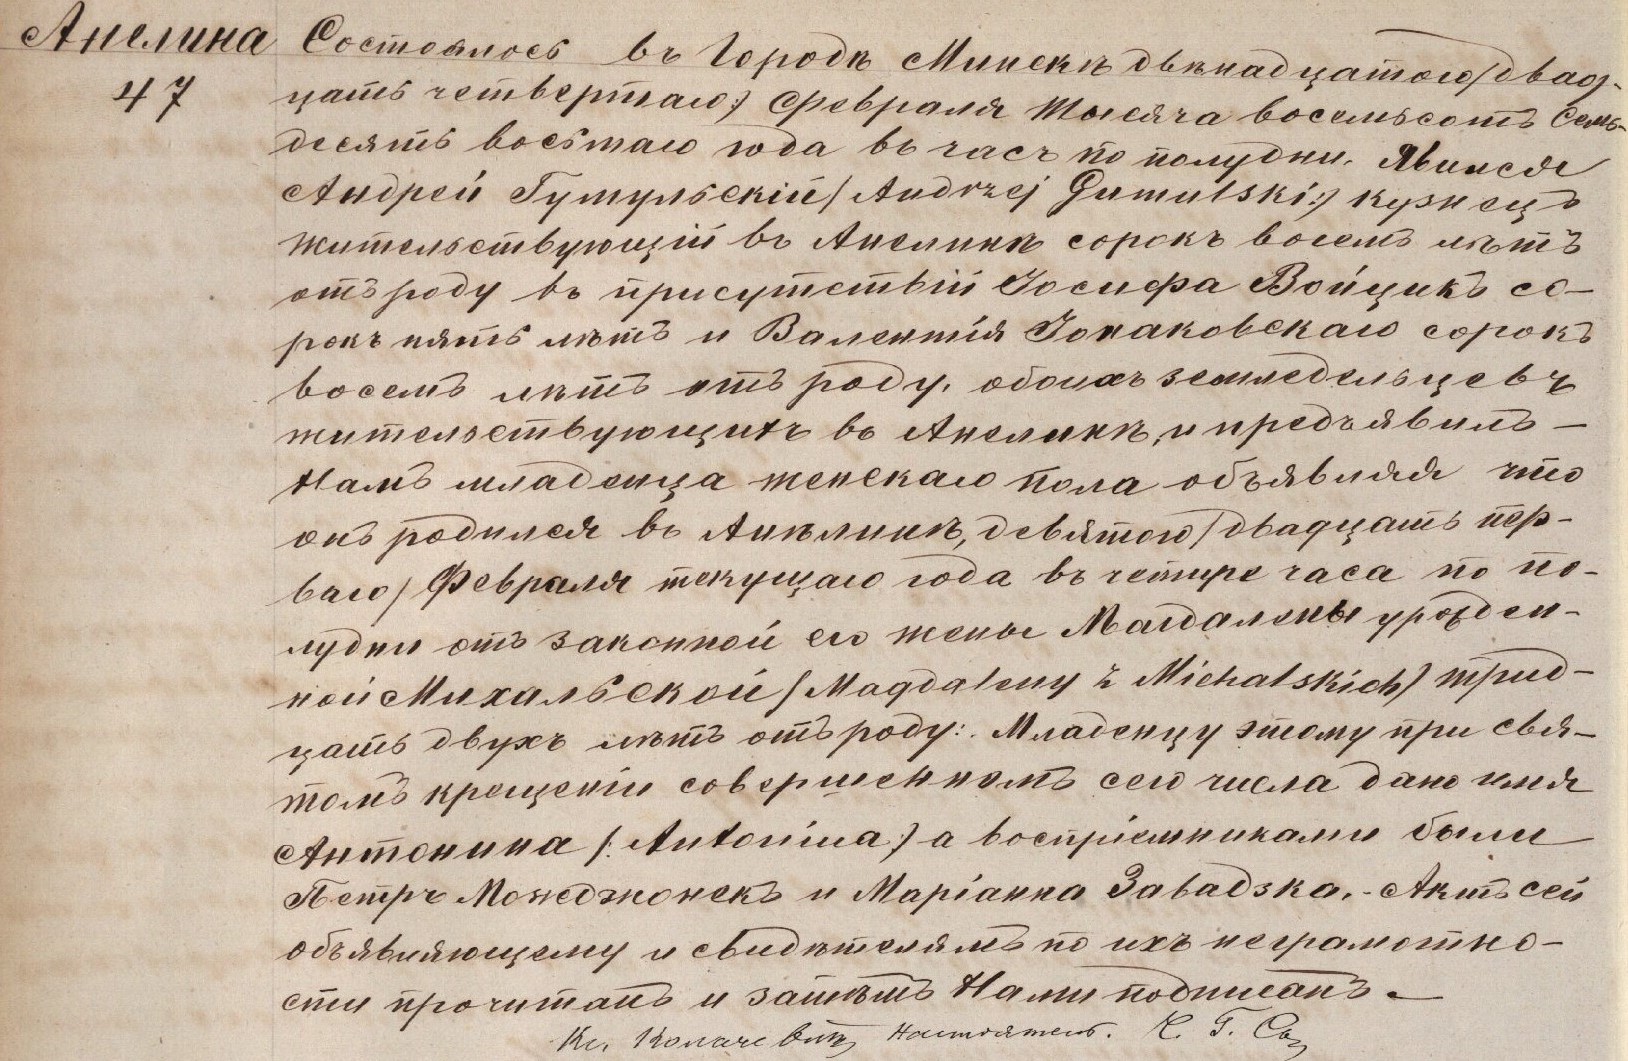 Анелина
47
Состоялось въ Городѣ Минскѣ двѣнадцатого /двад-
цать четвертаго:/ Февраля тысяча восемьсотъ семь-
десятъ восьмаго года въ часъ по полудни. Явился
Андрей Гумульскій /Andrzej Gumulski:/ кузнецъ
жительствующій въ Анелинѣ сорокъ восемъ лѣтъ
отъ роду въ присутствіи Іосифа Войцикъ со-
рокъ пять лѣтъ и Валентія Іонаковскаго сорокъ
восемъ лѣтъ отъ роду, обоихъ земледельцевъ
жительствующихъ въ Анелинѣ, и предъявилъ —
Намъ младенца женскаго пола объявляя что
онъ родился въ Анѣлинѣ, девятого /двадцать пер-
ваго/ Февраля текущаго года въ четыре часа по по-
лудни отъ законной его жены Магдалены урожден-
ной Михальской /Magdaleny z Michalskich/ трид-
цать двухъ лѣтъ отъ роду:. Младенцу этому при Свя-
томъ крещеніи совершенномъ сего числа дано имя
Антонина /: Antonina:/ а воспріемниками были
Петръ Можджонекъ и Маріанна Завадзка. - Актъ сей
объявляющему и свидѣтелямъ по ихъ неграмотно-
сти прочитанъ и затѣмъ Нами подписанъ. —
Кс. Настоятель.